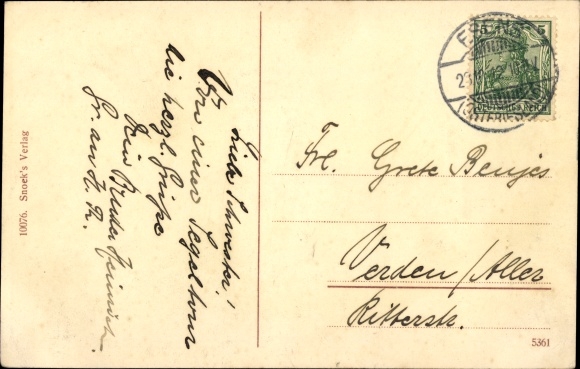 Liebe Schwester!
Von einer Segeltour
die herzl. Grüße
Dein Bruder Heinrich.
Gr. an H. R.
10076. Snoek's Verlag
ESENS
5 5
DEUTSCHES REICH
(OSTFRIESL.)
Frl. Grete Benjes
Verden/Aller
Ritterstr.
5361